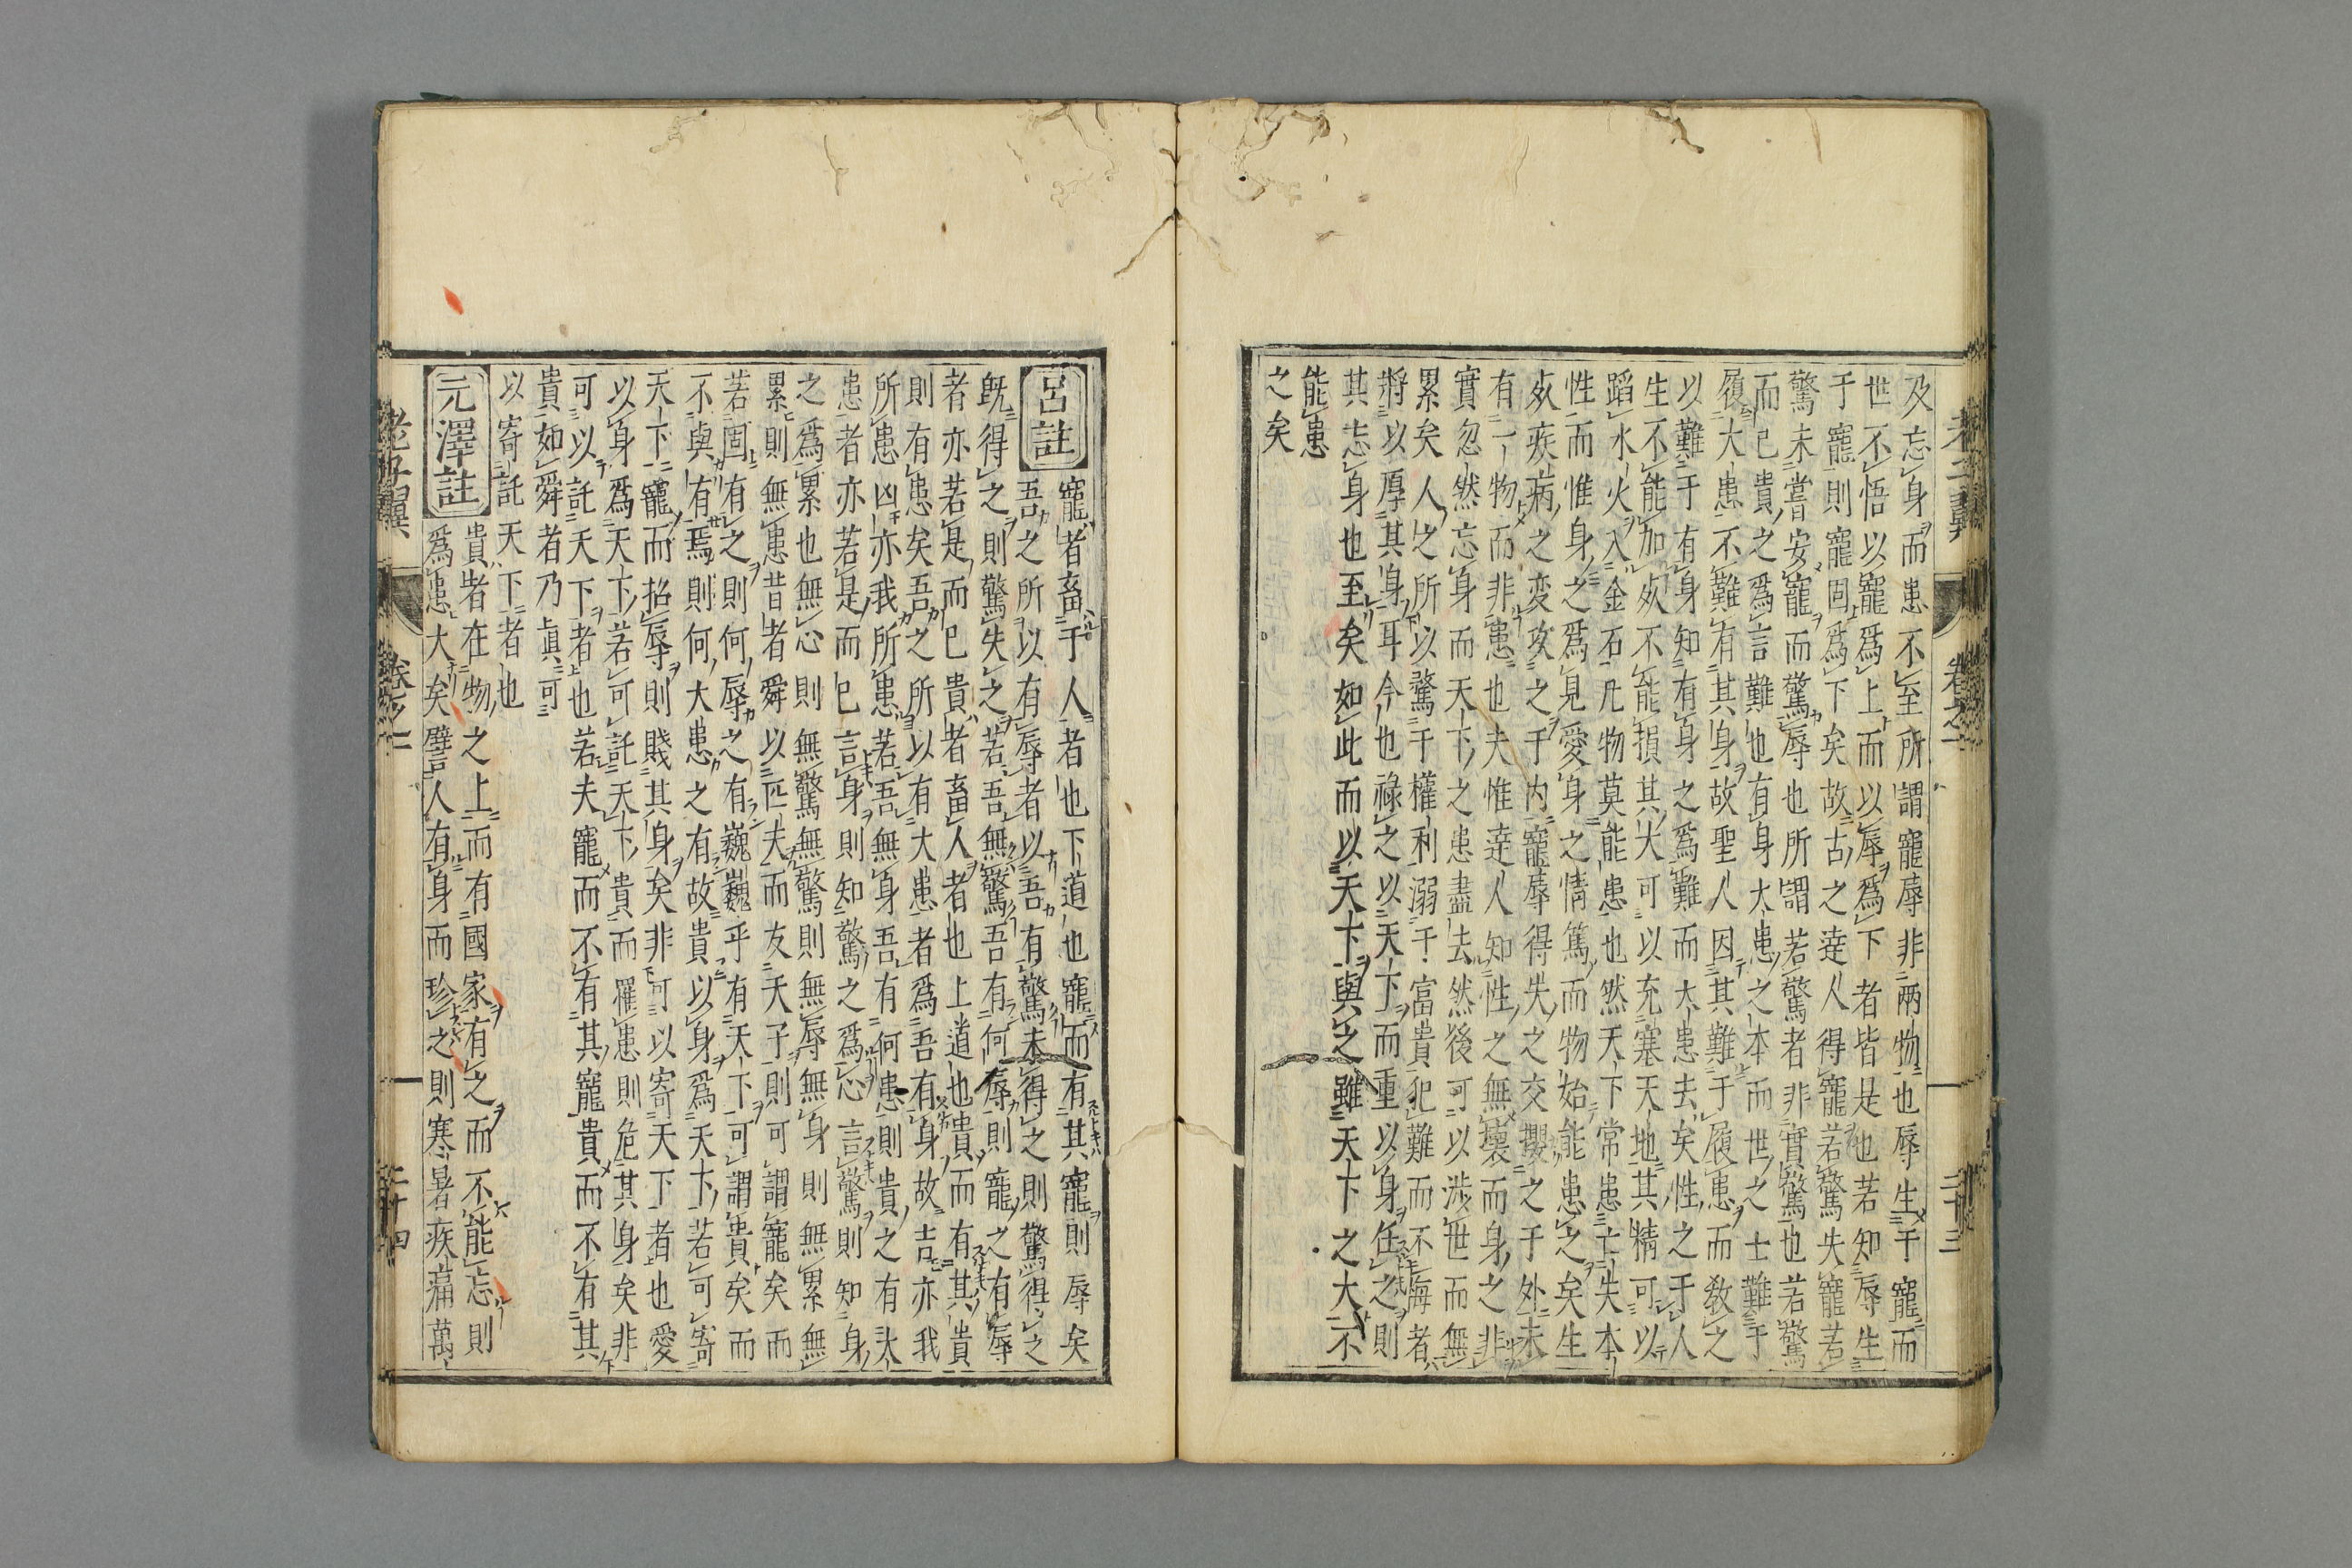 及忘身而患不至所謂寵辱非兩物也辱生于寵而
世不悟以寵爲上而以辱爲下者皆是也若知辱生
于寵則寵固爲下矣故古之達人得寵若驚失寵若
驚未嘗安寵而驚辱也所謂若驚者非實驚也若驚
而已貴之爲言難也有身大患之本而世之士難于
履大患不難有其身故聖人因其難于履患而教之
以難于有身知有身之爲難而大患去矣性之于人
生不能加死不能損其大可以充塞天地其精可以
蹈水火入金石凡物莫能患也然天下常患亡失本
性而惟身之爲見愛身之情篤而物始能患之矣生
死疾病之変攻之于内寵辱得失之交攖之于外未
有一物而非患也夫惟達人知性之無壞而身之非
實忽然忘身而天下之患盡去然後可以涉世而無
累矣人之所以騖于權利溺于富貴犯難而不悔者
將以厚其身耳今也祿之以天下而重以身任之則
其忘身也至矣如此而以天下與之雖天下之大不
能患
之矣
老子翼 卷之一 二十三
呂註
寵者畜于人者也下道也寵而有其寵則辱矣
吾之所以有辱者以吾有驚未得之則驚得之
既得之則驚失之若吾無驚吾有何辱則寵之有辱
者亦若是而已貴者畜人者也上道也貴而有其貴
則有患矣吾之所以有大患者爲吾有身故吉亦我
所患凶亦我所患若吾無身吾有何患則貴之有大
患者亦若是而已言身則知驚之爲心言驚則知身
之爲累也無心則無驚無驚則無辱無身則無累無
累則無患昔者舜以匹夫而友天子則可謂寵矣而
若固有之則何辱之有巍巍乎有天下可謂貴矣而
不與有焉則何大患之有故貴以身爲天下若可寄
天下寵而招辱則賤其身矣非可以寄天下者也愛
以身爲天下若可託天下貴而罹患則危其身矣非
可以託天下者也若夫寵而不有其寵貴而不有其
貴如舜者乃眞可
以寄託天下者也
元澤註
貴者在物之上而有國家有之而不能忘則
爲患大矣譬人有身而珍之則寒暑疾痛萬
老子翼 卷之一 二十四